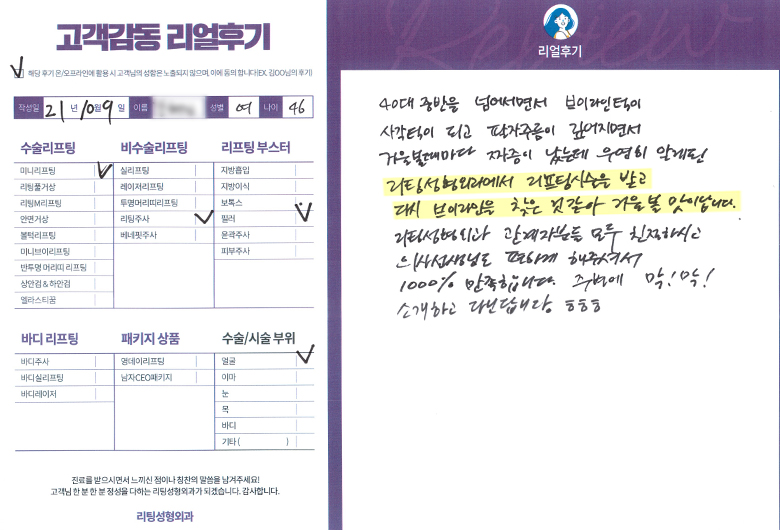 고객감동 리얼후기
해당 후기 온/오프라인에 활용 시 고객님의 성함은 노출되지 않으며, 이에 동의 합니다(EX. 김OO님의 후기)
작성일 21년 10월 9일 이름 성별 여 나이 46
수술리프팅
미니리프팅
리팅풀거상
리팅M리프팅
안면거상
볼턱리프팅
미니브이리프팅
반투명 머리띠 리프팅
상안검 & 하안검
엘라스티꿈
비수술리프팅
실리프팅
레이저리프팅
투명머리띠리프팅
리팅주사
베네핏주사
리프팅 부스터
지방흡입
지방이식
보톡스
필러
윤곽주사
피부주사
바디 리프팅
바디주사
바디실리프팅
바디레이저
패키지 상품
명데이리프팅
남자CEO패키지
수술/시술 부위
얼굴
이마
눈
목
바디
기타 ( )
진료를 받으시면서 느끼신 점이나 칭찬의 말씀을 남겨주세요!
고객님 한 분 한 분 정성을 다하는 리팅성형외과가 되겠습니다. 감사합니다.
리팅성형외과
Review
리얼후기
40대 중반을 넘어서면서 브이라인턱이
사각턱이 되고 팔자주름이 깊어지면서
거울볼때마다 짜증이 났는데 우연히 알게된
리팅성형외과에서 리프팅시술을 받고
다시 브이라인을 찾은 것같아 거울볼 맛이납니다.
리팅성형외과 관계자분들 모두 친절하시고
의사선생님도 편하게 해주셔서
1000% 만족합니다. 주변에 막! 막!
소개하고 다닌답니다. ㅎㅎㅎ